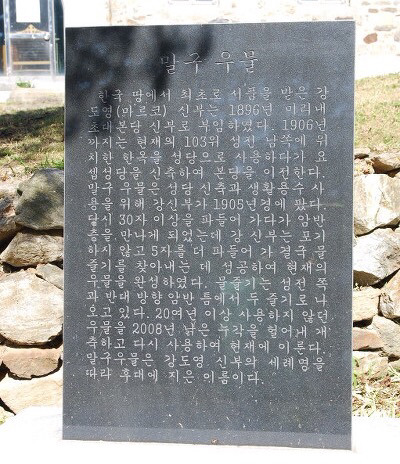 말구 우물
한국 땅에서 최초로 서품을 받은 강
도영(마르코) 신부는 1896년 미리내
초대본당 신부로 부임하였다. 1906년
까지는 현재의 103위 성전 남쪽에 위
치한 한옥을 성당으로 사용하다가 요
셉성당을 신축하여 본당을 이전한다.
말구 우물은 성당 신축과 생활용수 사
용을 위해 강신부가 1905년경에 팠다.
당시 30자 이상을 파들어 가다가 암반
층을 만나게 되었는데 강 신부는 포기
하지 않고 5자를 더 파들어 가 결국 물
줄기를 찾아내는 데 성공하여 현재의
우물을 완성하였다. 물줄기는 성전 쪽
과 반대 방향 암반 틈에서 두 줄기로 나
오고 있다. 20여년 이상 사용하지 않던
우물을 2008년 낡은 누각을 헐어내 개
축하고 다시 사용하여 현재에 이른다.
말구우물은 강도영 신부의 세례명을
따라 후대에 지은 이름이다.